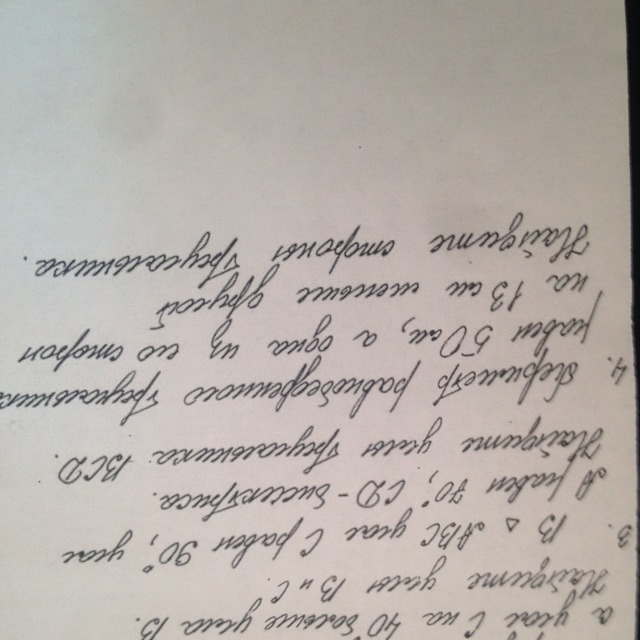 а угол С на 40° больше угла В.
Найдите углы В и С.
3. В △ АВС угол С равен 90°, угол
А равен 70°, CD - биссектриса.
Найдите углы треугольника BCD.
4. Периметр равнобедренного треугольника
равен 50 см, а одна из его сторон
на 13 см меньше другой
Найдите стороны треугольника.